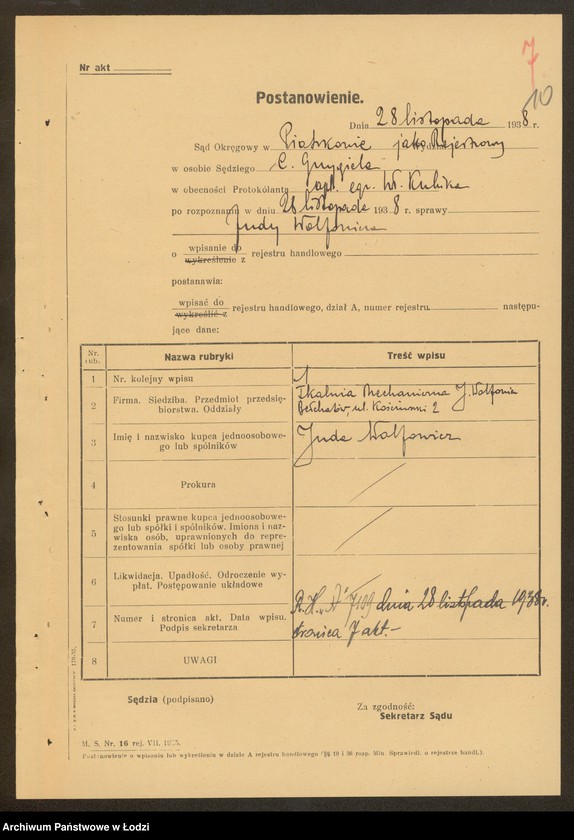 7
Nr akt
10
Postanowienie.
Dnia 28 listopada 1938 r.
Sąd Okręgowy w Piotrkowie jako Rejestrowy
w osobie Sędziego C. Grzegiela
w obecności Protokólanta apl. egz. W. Kubika
po rozpoznaniu w dniu 28 listopada 1938 r. sprawy
Judy Wolfowicza
wpisanie do
o wykreślenie z rejestru handlowego
postanawia:
wpisać do
wykreślić z rejestru handlowego, dział A, numer rejestru następu-
jące dane:
Nr. rub. Nazwa rubryki Treść wpisu
1 Nr. kolejny wpisu 1
2 Firma. Siedziba. Przedmiot przedsię-biorstwa. Oddziały Tkalnia Mechaniczna J. Wolfowicz
Bełchatów ul. Kościuszki 2
3 Imię i nazwisko kupca jednoosobowe-go lub spólników Juda Wolfowicz
4 Prokura
5 Stosunki prawne kupca jednoosobowe-
go lub spółki i spólników. Imiona i naz-
wiska osób, uprawnionych do repre-
zentowania spółki lub osoby prawnej
6 Likwidacja. Upadłość. Odroczenie wy-
płat. Postępowanie układowe
7 Numer i stronica akt. Data wpisu. Podpis sekretarza R.H. „A" 7199 dnia 28 listopada 1938r.
stronica 7 akt.-
8 UWAGI
Sędzia (podpisano)
Za zgodność:
Sekretarz Sądu
M. S. Nr. 16 rej. VII.
Postanowienie o wpisaniu lub wykreśleniu w dziale A rejestru handlowego (§§ 19 i 36 rozp. Min. Sprawiedl. o rejestrze handl.).
Archiwum Państwowe w Łodzi